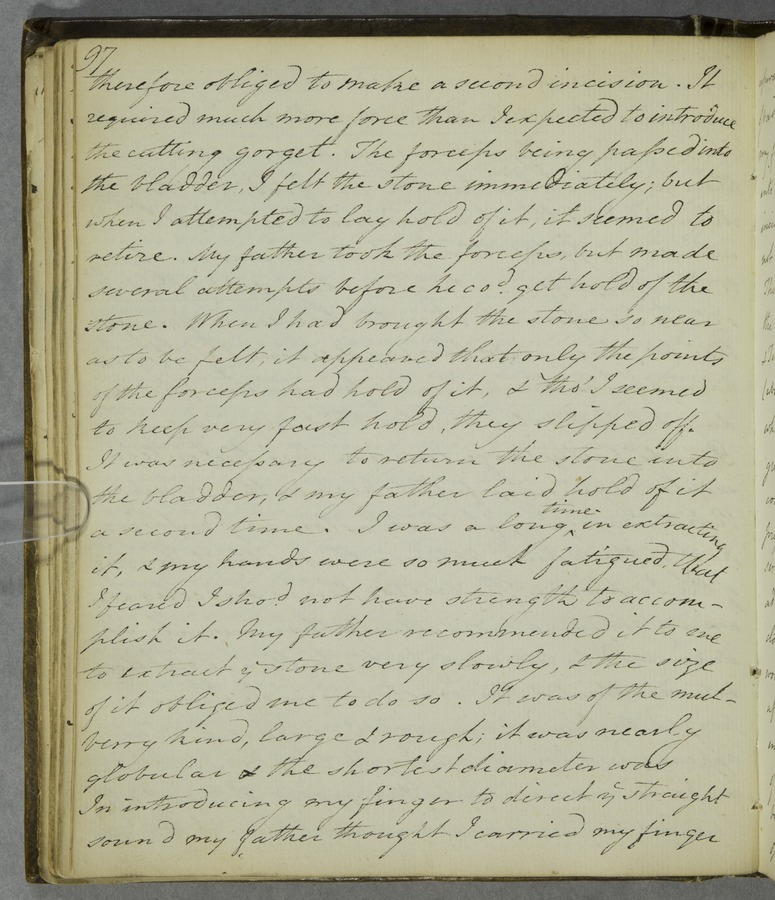 97
therefore obliged to make a second incision. It
required much more force than I expected to introduce
the cutting gorget. The forceps being paſsed into
the bladder, I felt the stone immediately; but
when I attempted to lay hold of it, it seemed to
retire. My father took the forceps, but made
several attempts before he co.d get hold of the
stone. When I had brought the stone so near
as to be felt, it appeared that only the points
of the forceps had hold of it, & tho' I seemed
to keep very fast hold, they slipped off.
It was neceſsary to return the stone into
the bladder, & my father laid hold of it
a second time. I was a long ^time in extracting
it, & my hands were so much fatigued, that
I feared I sho.d not have strength to accom-
plish it. My father recommended it to me
to extract ye stone very slowly, & the size
of it obliged me to do so. It was of the mul-
berry kind, large & rough; it was nearly
globular & the shortest diameter was
In introducing my finger to direct ye straight
sound my father thought I carried my finger